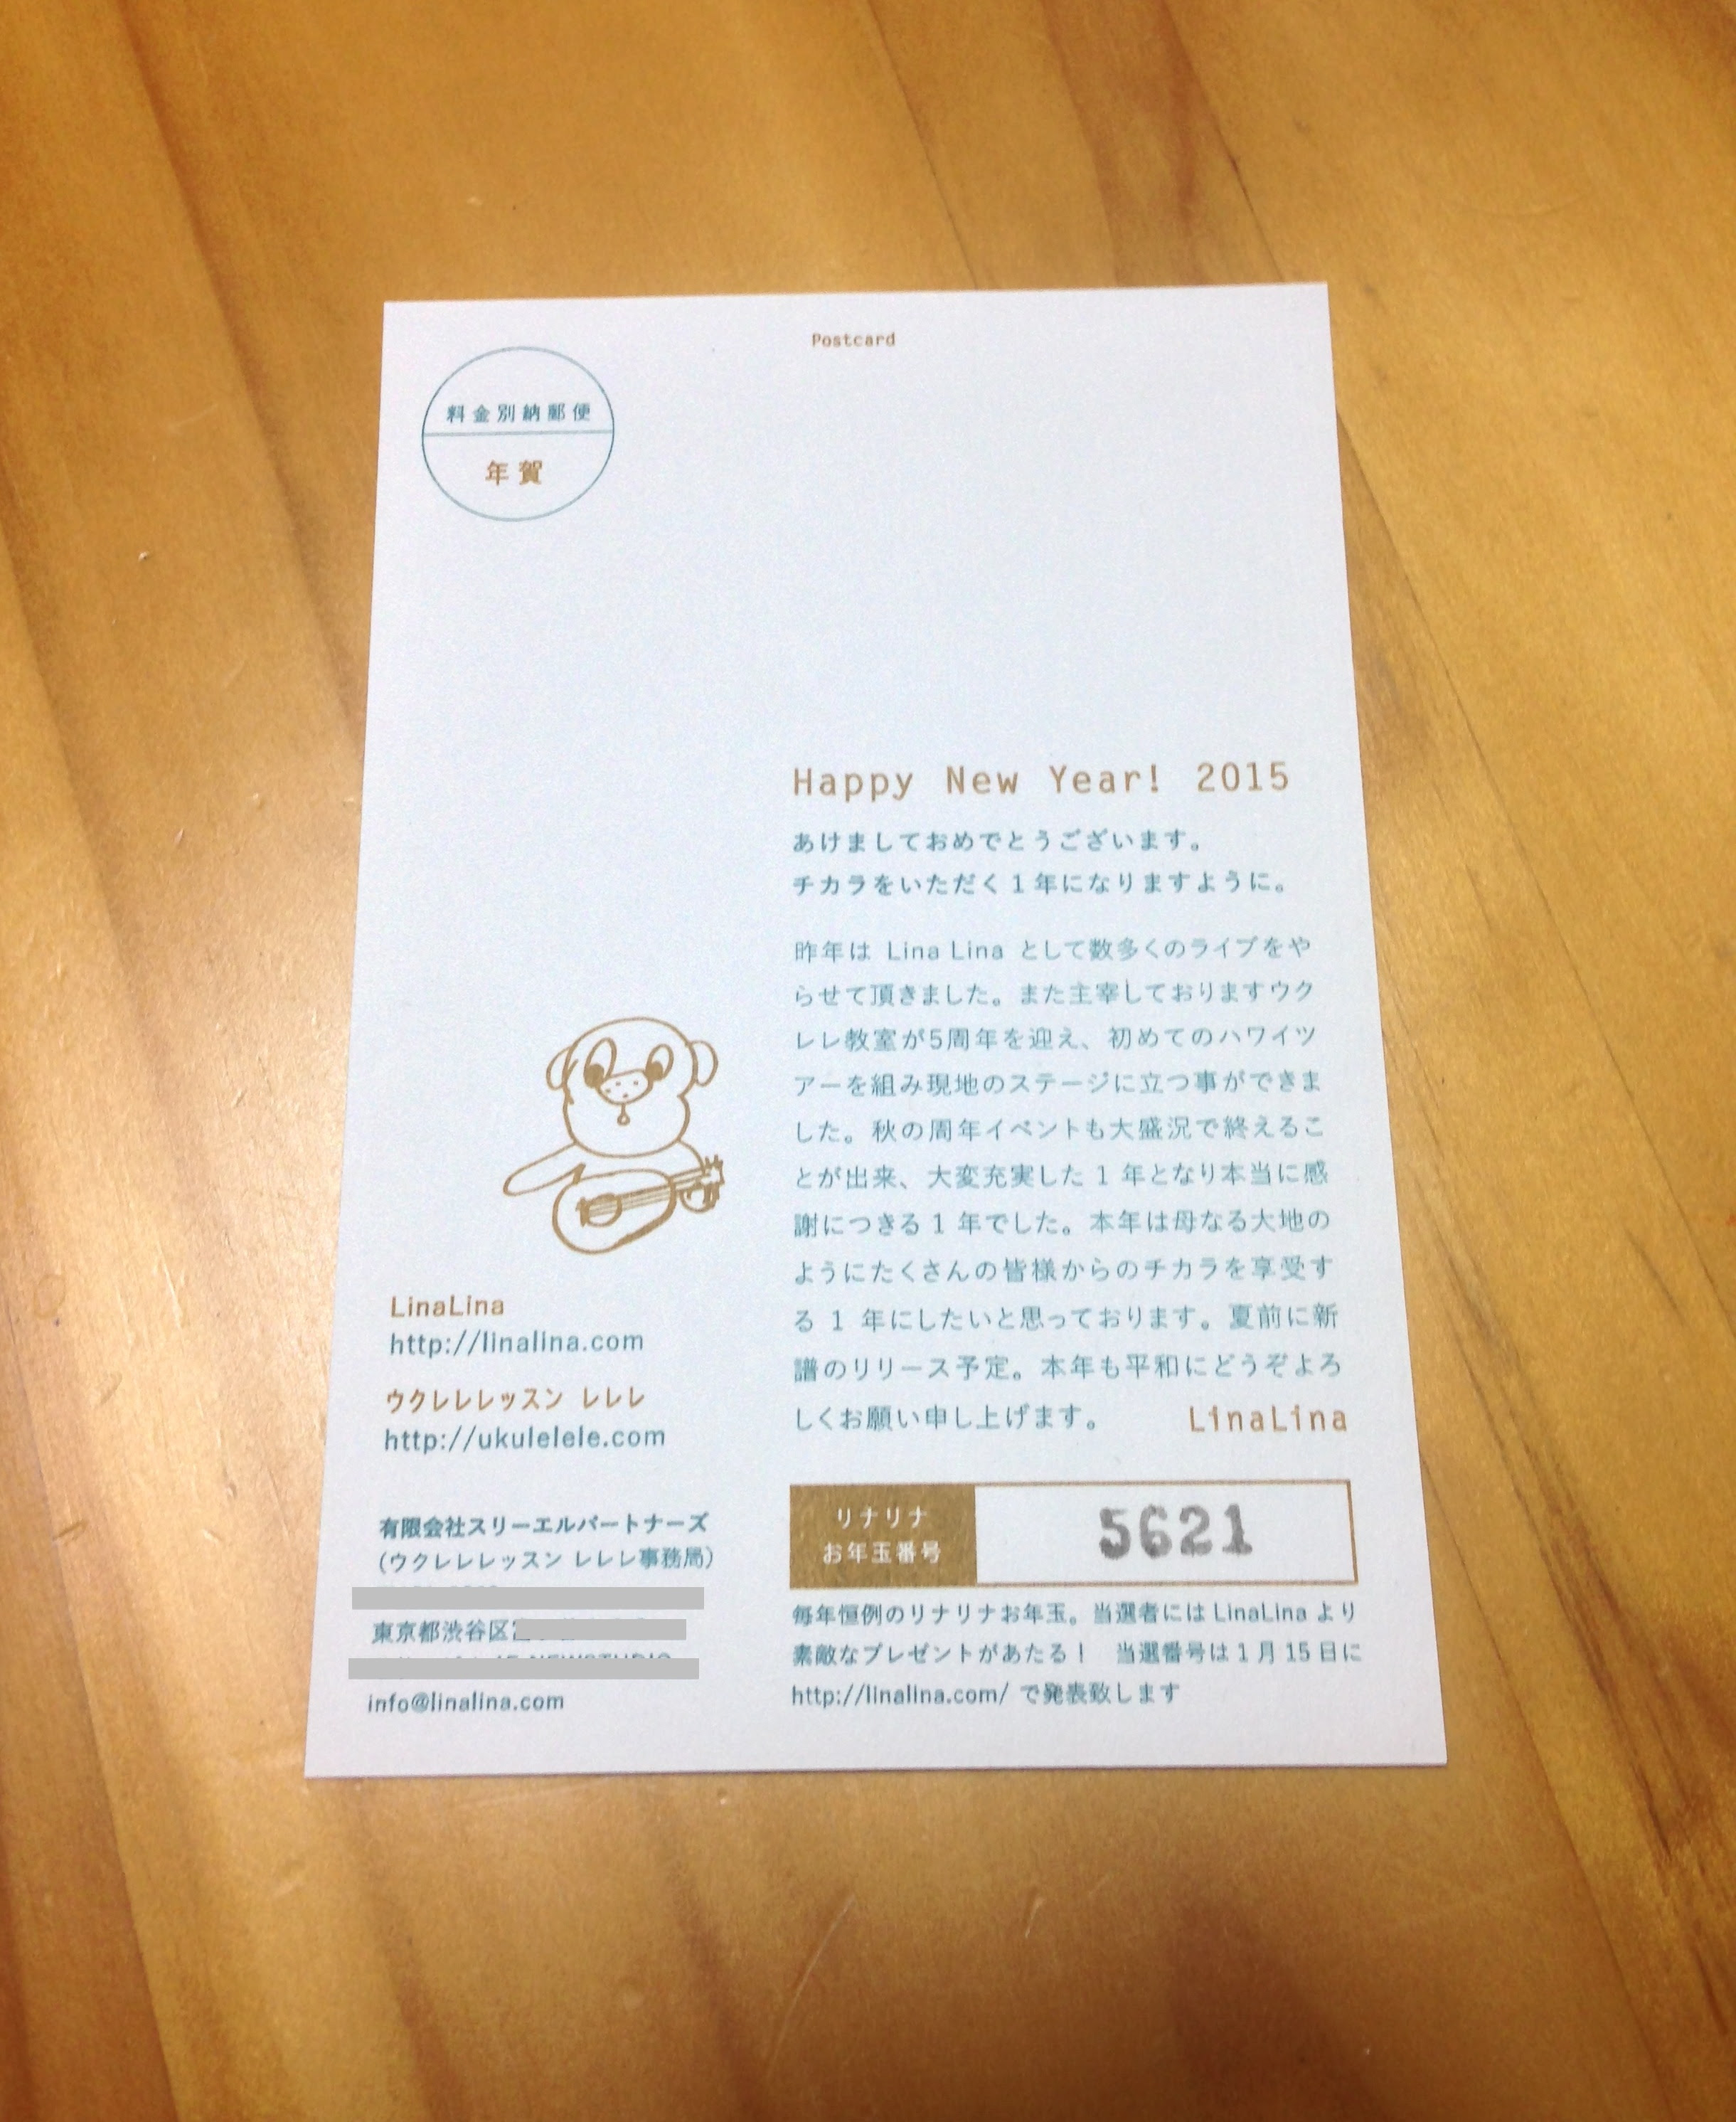 Postcard
料金別納郵便
年賀
Happy New Year! 2015
あけましておめでとうございます。
チカラをいただく1年になりますように。
昨年は Lina Lina として数多くのライブをや
らせて頂きました。また主宰しておりますウク
レレ教室が5周年を迎え、初めてのハワイツ
アーを組み現地のステージに立つ事ができま
した。秋の周年イベントも大盛況で終えるこ
とが出来、大変充実した 1 年となり本当に感
謝につきる 1 年でした。本年は母なる大地の
ようにたくさんの皆様からのチカラを享受す
る 1 年にしたいと思っております。夏前に新
譜のリリース予定。本年も平和にどうぞよろ
しくお願い申し上げます。 LinaLina
LinaLina
http://linalina.com
ウクレレレッスン レレレ
http://ukulelele.com
有限会社スリーエルパートナーズ
(ウクレレレッスン レレレ事務局)
東京都渋谷区
info@linalina.com
リナリナ
お年玉番号
5621
毎年恒例のリナリナお年玉。当選者には LinaLina より
素敵なプレゼントがあたる！ 当選番号は 1 月 15 日に
http://linalina.com/ で発表致します